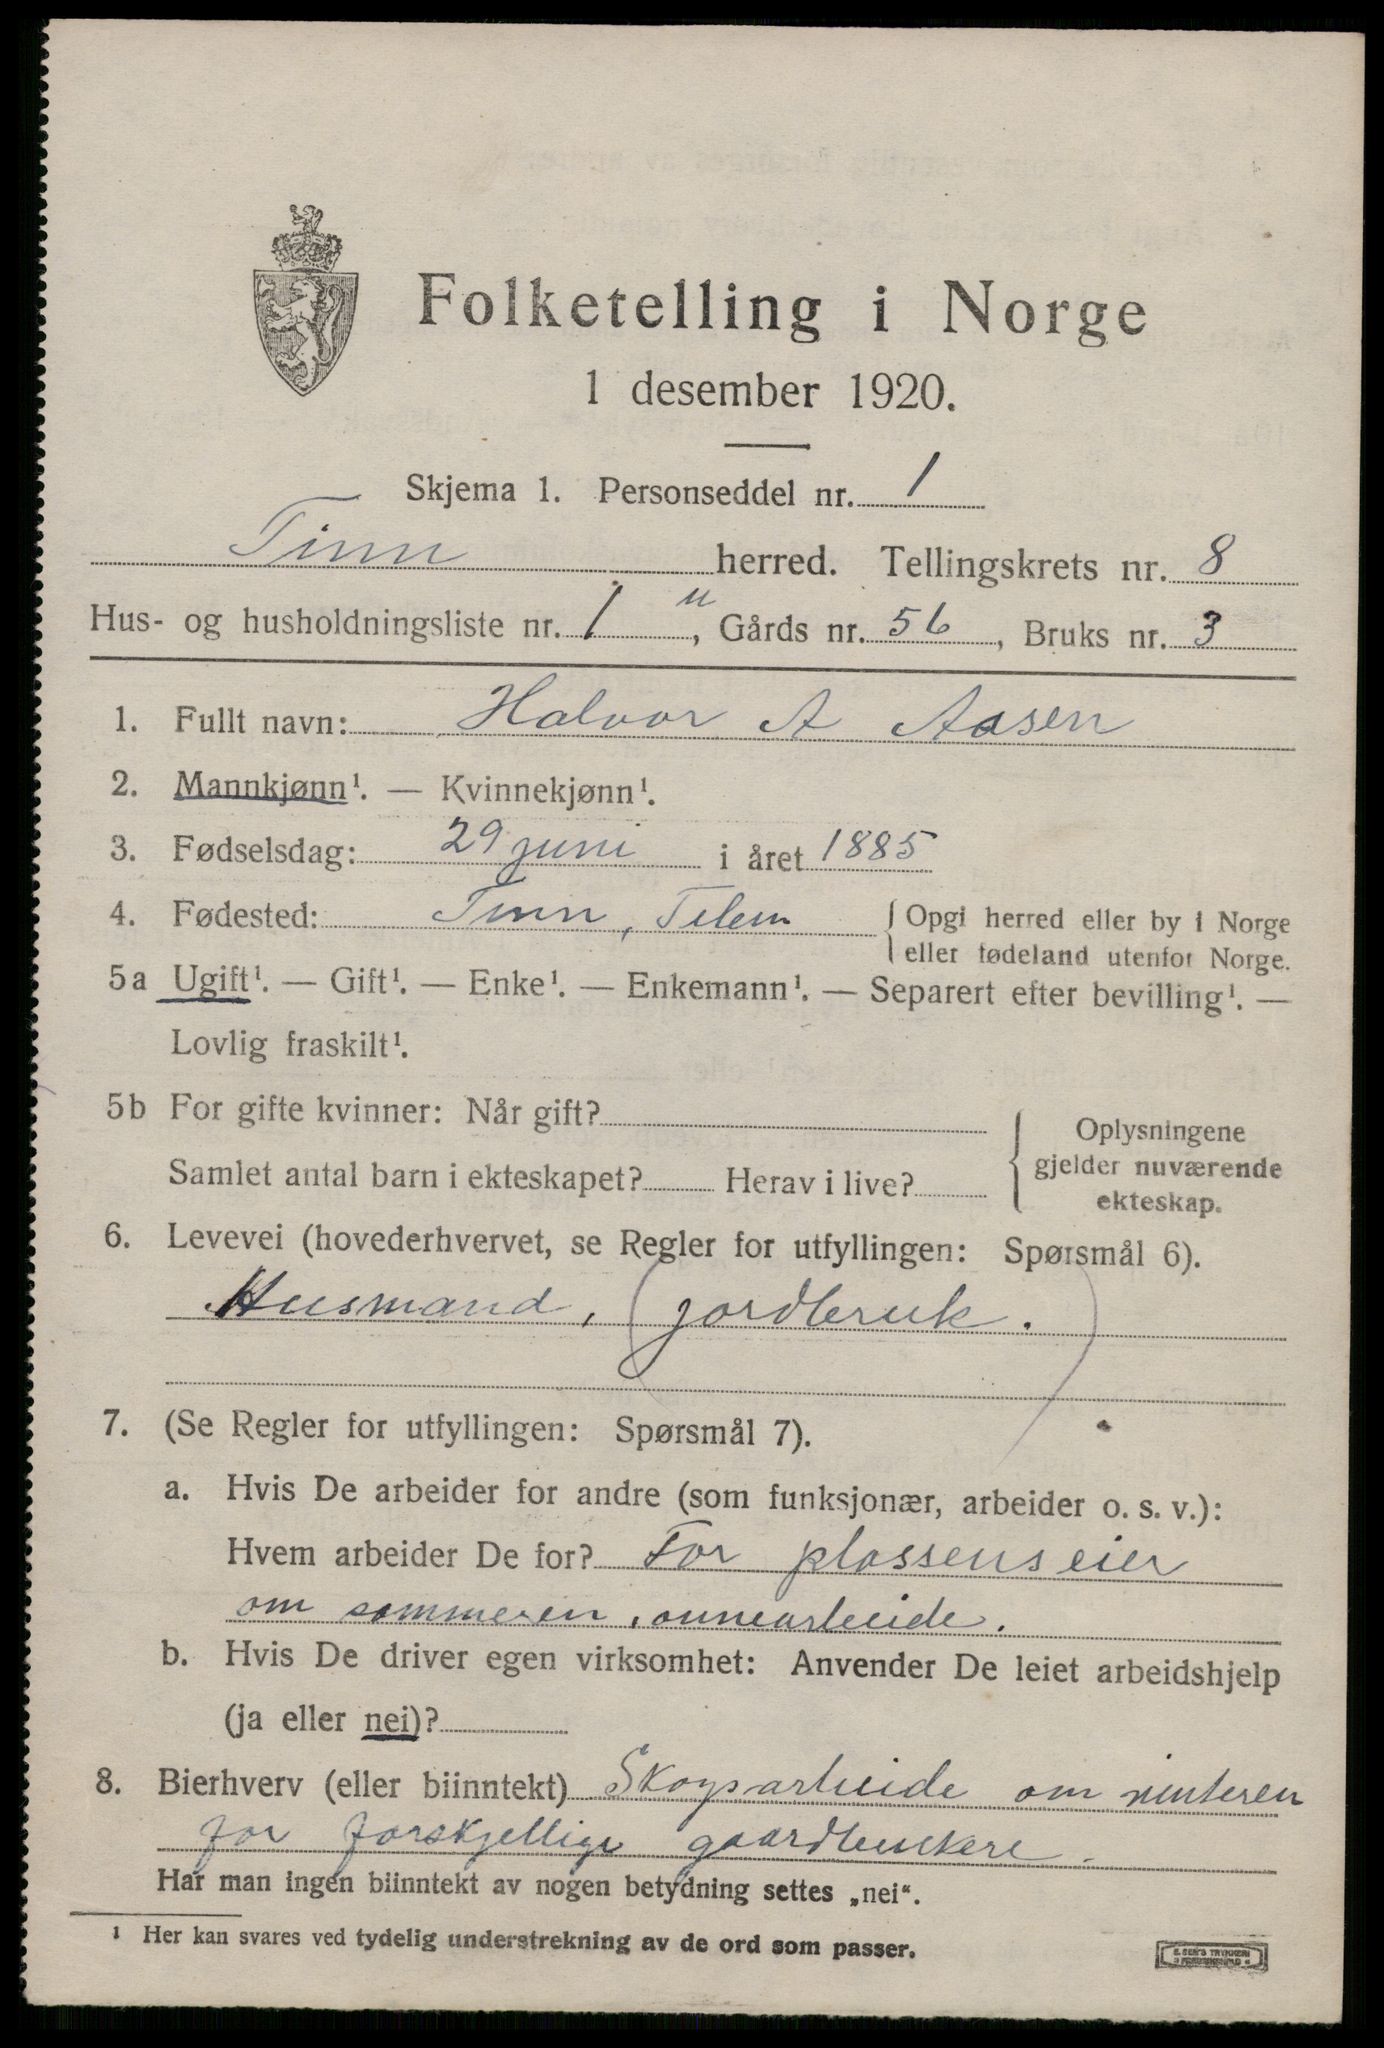 Folketelling i Norge
1 desember 1920.
Skjema 1. Personseddel nr. 1
Tinn herred. Tellingskrets nr. 8
Hus- og husholdningsliste nr. 1 u, Gårds nr. 56, Bruks nr. 3
1. Fullt navn: Halvor A Aasen
2. Mannkjønn¹. — Kvinnekjønn¹.
3. Fødselsdag: 29 juni i året 1885
4. Fødested: Tinn, Telem { Opgi herred eller by i Norge
eller fødeland utenfor Norge.
5a Ugift¹. — Gift¹. — Enke¹. — Enkemann¹. — Separert efter bevilling¹. —
Lovlig fraskilt¹.
5b For gifte kvinner: Når gift?
Samlet antal barn i ekteskapet? Herav i live?
Oplysningene
gjelder nuværende
ekteskap.
6. Levevei (hovederhvervet, se Regler for utfyllingen: Spørsmål 6).
Husmand, (jordbruk.)
7. (Se Regler for utfyllingen: Spørsmål 7).
a. Hvis De arbeider for andre (som funksjonær, arbeider o. s. v.):
Hvem arbeider De for? For plassens eier
om sommeren, onnearbeide.
b. Hvis De driver egen virksomhet: Anvender De leiet arbeidshjelp
(ja eller nei)?
8. Bierhverv (eller biinntekt) Skogsarbeide om vinteren
for forskjellige gaardbrukere.
Har man ingen biinntekt av nogen betydning settes „nei“.
¹ Her kan svares ved tydelig understrekning av de ord som passer.